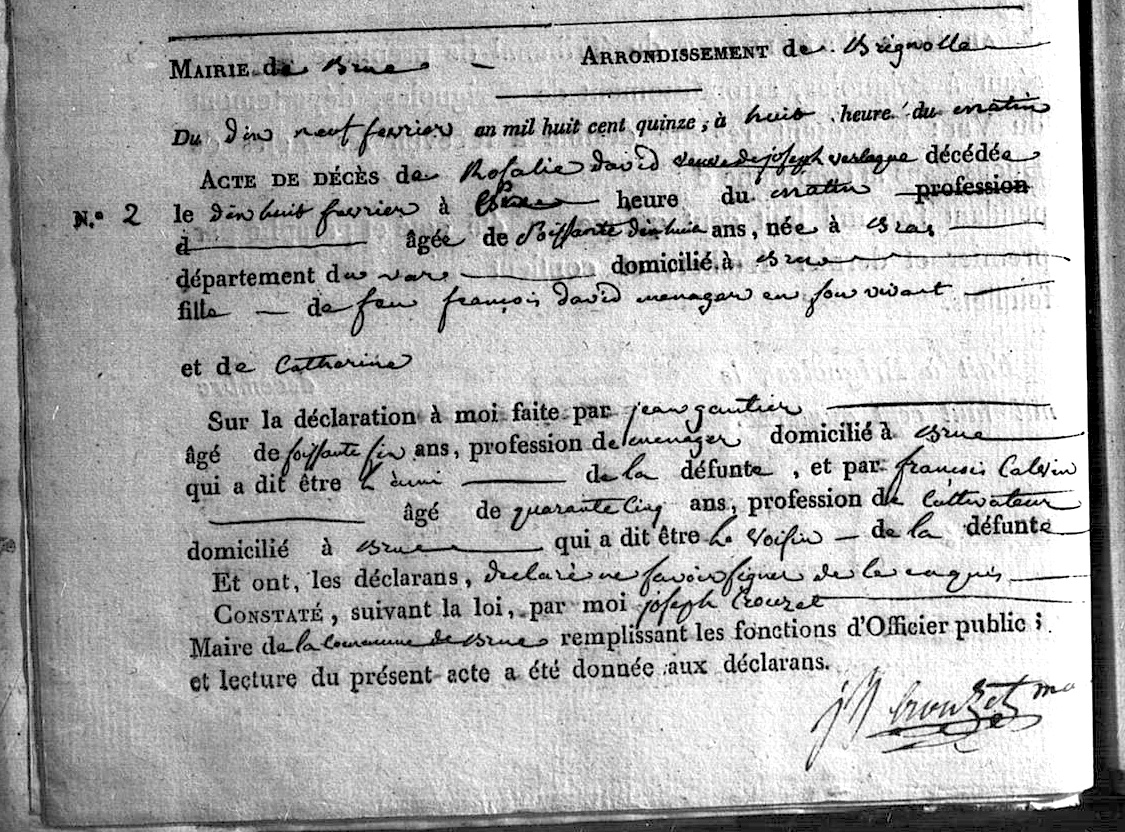 MAIRIE de Brue – ARRONDISSEMENT de Brignolle
Du dix neuf fevrier an mil huit cent quinze, à huit heure du matin
ACTE DE DÉCÈS de Rosalie david veuve de joseph verlaque décédée
N.º 2 le dix huit fevrier à heure du matin profession
d âgée de soissante dix huit ans, née à Bras
département du var domicilié à Brue
fille – de feu françois david menager en son vivant
et de Catherine
Sur la déclaration à moi faite par jean gautier
âgé de soissante six ans, profession de menager domicilié à Brue
qui a dit être l'ami de la défunte, et par françois Calvin
âgé de quarante cinq ans, profession de Cultivateur
domicilié à Brue qui a dit être le voisin – de la défunte
Et ont, les déclarans, declaré ne savoir signer de ce enquis
CONSTATÉ, suivant la loi, par moi joseph Crouzet
Maire de la Commune de Brue remplissant les fonctions d'Officier public;
et lecture du présent acte a été donnée aux déclarans.
Crouzet